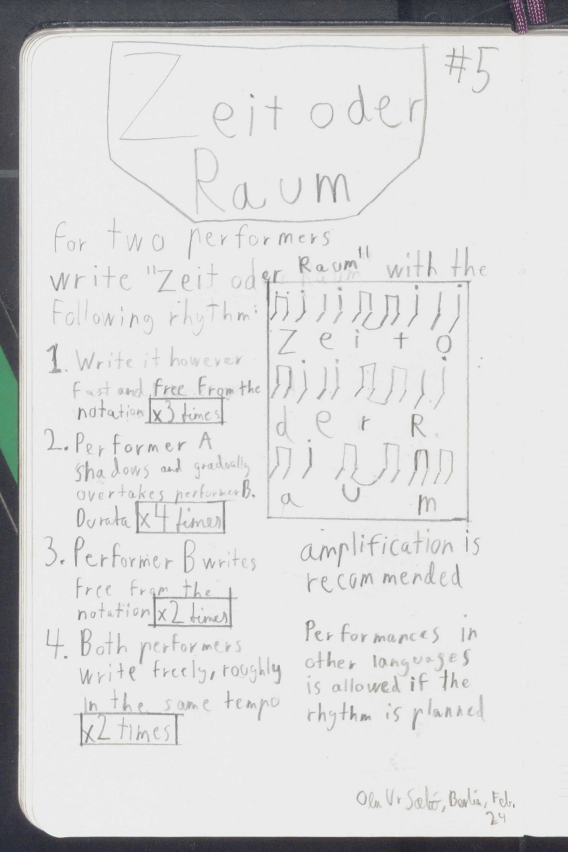 #5
Zeit oder
Raum
for two performers
write "Zeit oder Raum" with the
following rhythm:
Z e i t o
d e r R.
a u m
1. Write it however
fast and free from the
notation x3 times
2. Performer A
shadows and gradually
overtakes performer B.
Durata x4 times
3. Performer B writes
free from the
notation x2 times
4. Both performers
write freely, roughly
in the same tempo
x2 times
amplification is
recommended
Performances in
other languages
is allowed if the
rhythm is planned
Berlin, Feb.
24